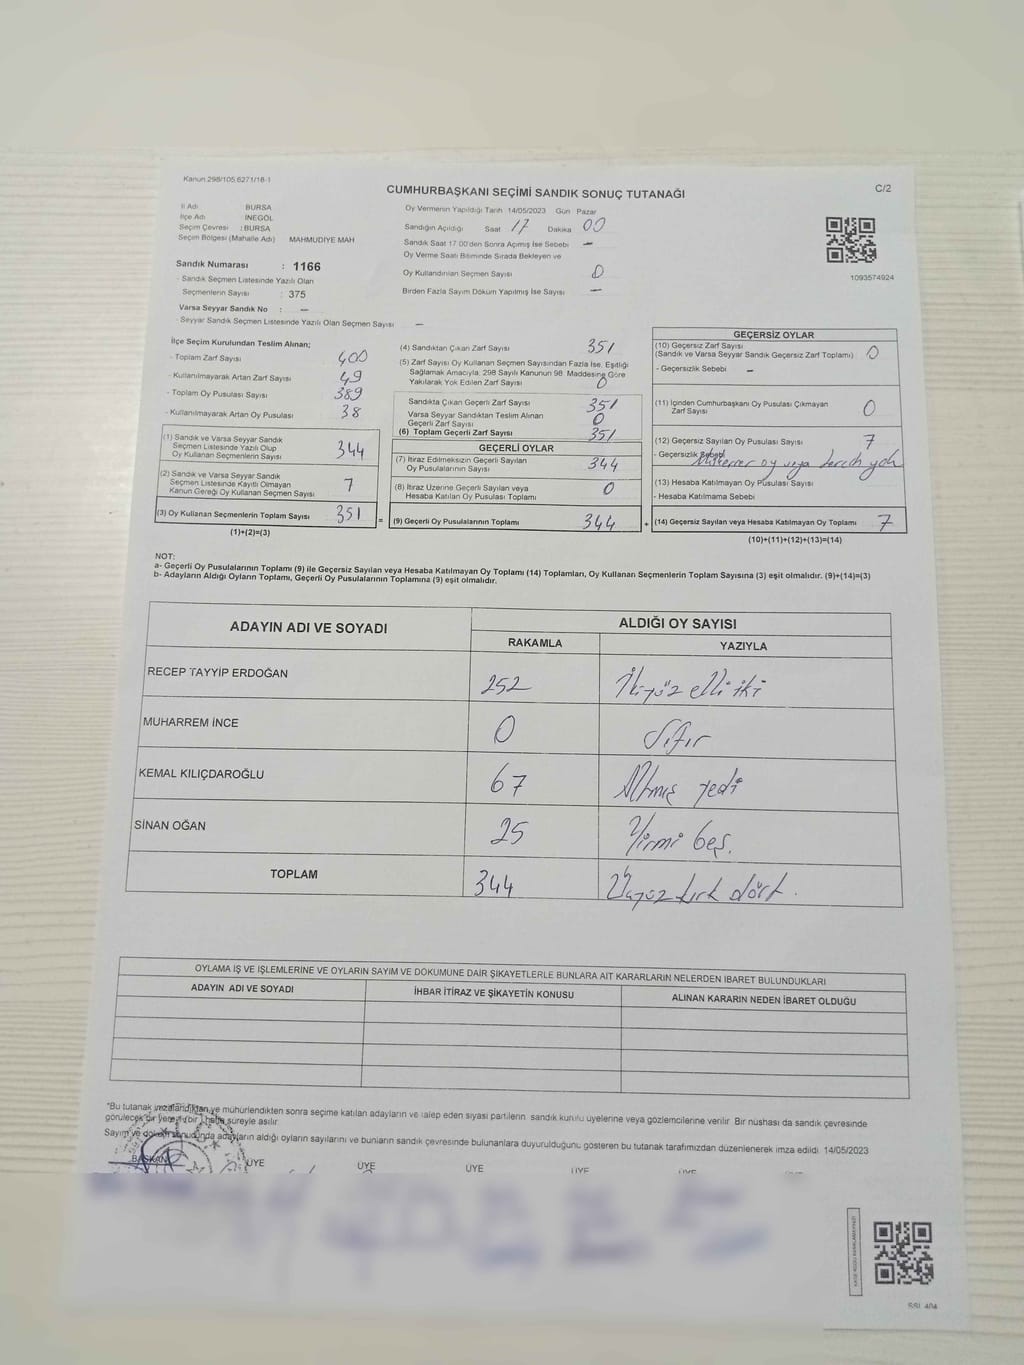 Kanun 298/105,6271/18-1
CUMHURBAŞKANI SEÇİMİ SANDIK SONUÇ TUTANAĞI
C/2
İl Adı BURSA
İlçe Adı İNEGÖL
Seçim Çevresi : BURSA
Seçim Bölgesi (Mahalle Adı) MAHMUDİYE MAH
Sandık Numarası : 1166
- Sandık Seçmen Listesinde Yazılı Olan
Seçmenlerin Sayısı : 375
Varsa Seyyar Sandık No : –
- Seyyar Sandık Seçmen Listesinde Yazılı Olan Seçmen Sayısı –
Oy Vermenin Yapıldığı Tarih 14/05/2023 Gün Pazar
Sandığın Açıldığı Saat 17 Dakika 00
Sandık Saat 17.00'den Sonra Açılmış İse Sebebi –
Oy Verme Saati Bitiminde Sırada Bekleyen ve
Oy Kullandırılan Seçmen Sayısı 0
Birden Fazla Sayım Döküm Yapılmış İse Sayısı –
1093574924
İlçe Seçim Kurulundan Teslim Alınan;
- Toplam Zarf Sayısı 400
- Kullanılmayarak Artan Zarf Sayısı 49
- Toplam Oy Pusulası Sayısı 389
- Kullanılmayarak Artan Oy Pusulası 38
(1) Sandık ve Varsa Seyyar Sandık
Seçmen Listesinde Yazılı Olup
Oy Kullanan Seçmenlerin Sayısı 344
(2) Sandık ve Varsa Seyyar Sandık
Seçmen Listesinde Kayıtlı Olmayan
Kanun Gereği Oy Kullanan Seçmen Sayısı 7
(3) Oy Kullanan Seçmenlerin Toplam Sayısı 351
(1)+(2)=(3)
(4) Sandıktan Çıkan Zarf Sayısı 351
(5) Zarf Sayısı Oy Kullanan Seçmen Sayısından Fazla İse, Eşitliği
Sağlamak Amacıyla, 298 Sayılı Kanunun 98. Maddesine Göre
Yakılarak Yok Edilen Zarf Sayısı 0
Sandıkta Çıkan Geçerli Zarf Sayısı 351
Varsa Seyyar Sandıktan Teslim Alınan
Geçerli Zarf Sayısı 0
(6) Toplam Geçerli Zarf Sayısı 351
GEÇERLİ OYLAR
(7) İtiraz Edilmeksizin Geçerli Sayılan
Oy Pusulalarının Sayısı 344
(8) İtiraz Üzerine Geçerli Sayılan veya
Hesaba Katılan Oy Pusulası Toplamı 0
= (9) Geçerli Oy Pusulalarının Toplamı 344
GEÇERSİZ OYLAR
(10) Geçersiz Zarf Sayısı
(Sandık ve Varsa Seyyar Sandık Geçersiz Zarf Toplamı) 0
- Geçersizlik Sebebi –
(11) İçinden Cumhurbaşkanı Oy Pusulası Çıkmayan
Zarf Sayısı 0
(12) Geçersiz Sayılan Oy Pusulası Sayısı 7
- Geçersizlik Sebebi Mükerrer oy veya tercih yok
(13) Hesaba Katılmayan Oy Pusulası Sayısı
- Hesaba Katılmama Sebebi
+ (14) Geçersiz Sayılan veya Hesaba Katılmayan Oy Toplamı 7
(10)+(11)+(12)+(13)=(14)
NOT:
a- Geçerli Oy Pusulalarının Toplamı (9) ile Geçersiz Sayılan veya Hesaba Katılmayan Oy Toplamı (14) Toplamları, Oy Kullanan Seçmenlerin Toplam Sayısına (3) eşit olmalıdır. (9)+(14)=(3)
b- Adayların Aldığı Oyların Toplamı, Geçerli Oy Pusulalarının Toplamına (9) eşit olmalıdır.
ADAYIN ADI VE SOYADI
ALDIĞI OY SAYISI
RAKAMLA YAZIYLA
RECEP TAYYİP ERDOĞAN 252 İkiyüz elli iki
MUHARREM İNCE 0 Sıfır
KEMAL KILIÇDAROĞLU 67 Altmış yedi
SİNAN OĞAN 25 Yirmi beş.
TOPLAM 344 Üçyüz kırk dört.
OYLAMA İŞ VE İŞLEMLERİNE VE OYLARIN SAYIM VE DÖKÜMÜNE DAİR ŞİKAYETLERLE BUNLARA AİT KARARLARIN NELERDEN İBARET BULUNDUKLARI
ADAYIN ADI VE SOYADI İHBAR İTİRAZ VE ŞİKAYETİN KONUSU ALINAN KARARIN NEDEN İBARET OLDUĞU
*Bu tutanak imzalandıktan ve mühürlendikten sonra seçime katılan adayların ve talep eden siyasi partilerin, sandık kurulu üyelerine veya gözlemcilerine verilir. Bir nüshası da sandık çevresinde
görülecek bir yere (bir) hafta süreyle asılır
Sayım ve döküm sonucunda adayların aldığı oyların sayılarını ve bunların sandık çevresinde bulunanlara duyurulduğunu gösteren bu tutanak tarafımızdan düzenlenerek imza edildi. 14/05/2023
BAŞKAN ÜYE ÜYE ÜYE ÜYE ÜYE
SSİ 404